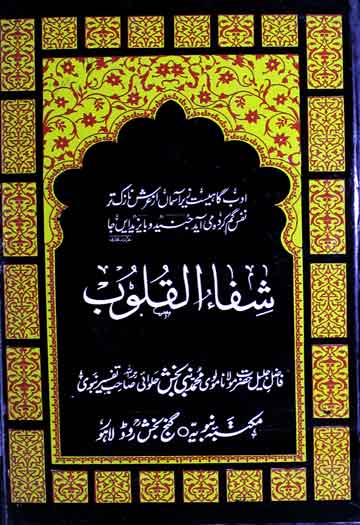 ادب گاہیست زیر آسماں از عرش نازک تر
نفس گم کردہ می آید جنید و بایزید ایں جا
شفاء القلوب
فاضل جلیل حضرت مولانا مولوی محمد نبی بخش حلوائی صاحب تفسیر نبوی
مکتبہ نبویہ ○ گنج بخش روڈ لاہور